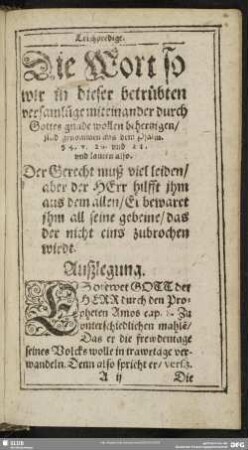 Leichpredigt.
Die Wort so
wir in dieser betrübten
versamlũge miteinander durch
Gottes gnade wollen behertzigen/
sind genommen aus dem Psalm.
34. v. 20. und 21.
und lauten also.
Der Gerecht muß viel leiden/
aber der HErr hilfft ihm
aus dem allen/ Er bewaret
ihm all seine gebeine/ das
der nicht eins zubrochen
wirdt.
Außlegung.
ES drewet GOTT der
HERR durch den Pro-
pheten Amos cap. 8. Zu
unterschiedlichen mahlẽ/
Das er die frewdentage
seines Volcks wolle in trawrtage ver-
wandeln. Denn also spricht er/ vers 3.
A ij Die
SLUB